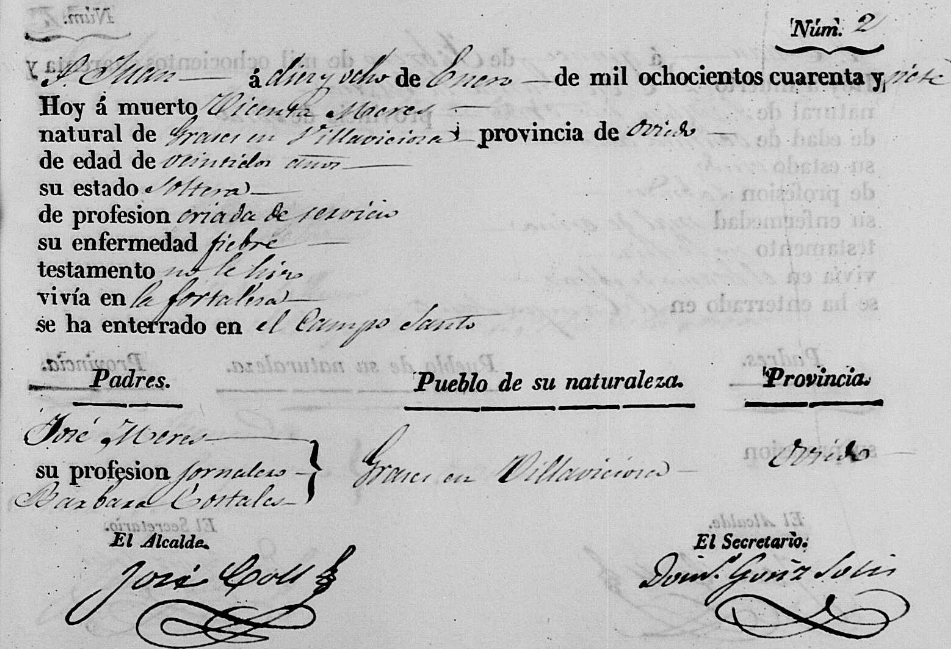 Núm. 2
Sn. Juan á diez y ocho de Enero de mil ochocientos cuarenta y siete
Hoy á muerto Vicenta Meres
natural de Grases en Villaviciosa provincia de Oviedo
de edad de veintidos años
su estado Soltera
de profesion criada de servicio
su enfermedad fiebre
testamento no le hizo
vivía en la fortaleza
se ha enterrado en el Campo Santo
Padres. Pueblo de su naturaleza. Provincia.
José Meres
su profesion jornalero Grases en Villaviciosa Oviedo
Barbara Costales
El Alcalde. El Secretario.
José Coll Domo. Gonz Solis